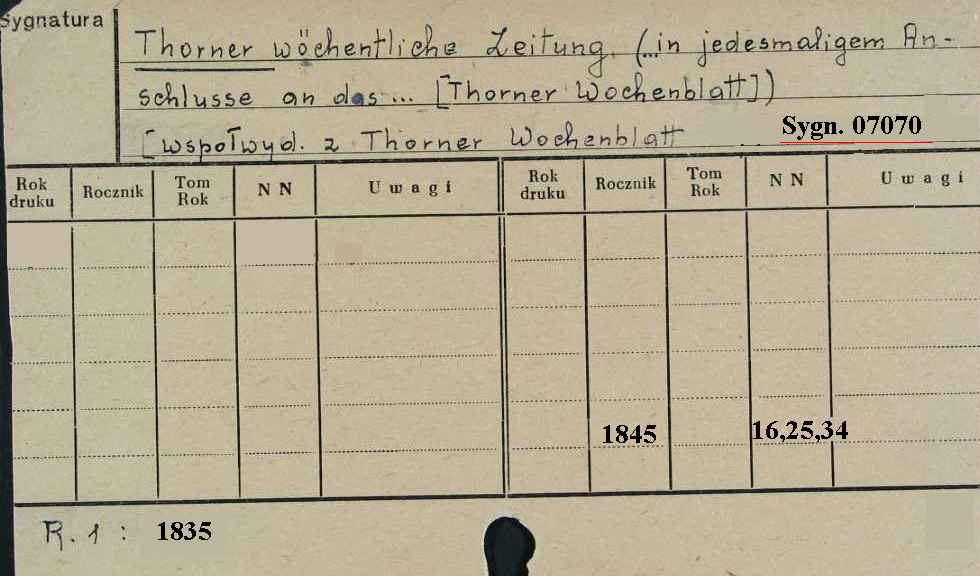 Sygnatura
Thorner wöchentliche Zeitung (... in jedesmaligem An-
schlusse an das... [Thorner Wochenblatt])
[współwyd. z Thorner Wochenblatt
Sygn. 07070
Rok druku Rocznik Tom Rok N N Uwagi Rok druku Rocznik Tom Rok N N Uwagi
1845 16,25,34
R. 1 : 1835